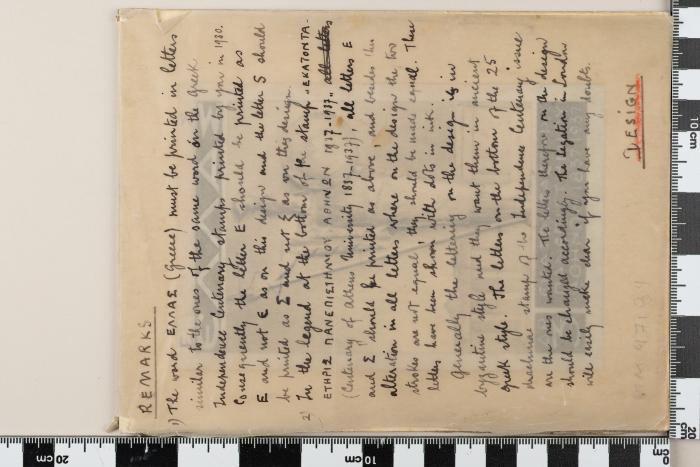 REMARKS
1) The word ΕΛΛΑΣ (Greece) must be printed in letters
similar to the ones of the same word on the Greek
Independence Centenary stamps printed by you in 1930.
Consequently the letter E should be printed as
E and not Є as on this design and the letter S should
be printed as Σ and not Ξ as on this design.
2) In the legend at the bottom of the stamp "ΕΚΑΤΟΝΤΑ-
ΕΤΗΡΙΣ ΠΑΝΕΠΙΣΤΗΜΙΟΥ ΑΘΗΝΩΝ 1837-1937" all letters
(Centenary of Athens University 1837-1937), all letters E
and Σ should be printed as above, and besides this
alteration in all letters where on the design the two
strokes are not equal, they should be made equal. These
letters have been shown with dots in ink.
Generally the lettering on the design is in
byzantine style and they want them in ancient
greek style. The letters on the bottom of the 25
drachmae stamp of the Independence Centenary issue
are the ones wanted. The letters therefore on the design
should be changed accordingly. The Legation in London
will easily make clear if you have any doubts.
DESIGN
10 cm
20 cm
20 cm
10 cm
0